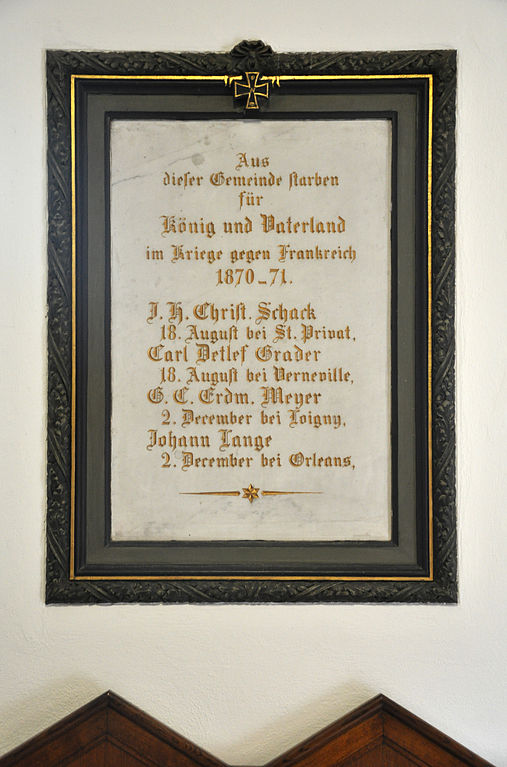 Aus
dieser Gemeinde starben
für
König und Vaterland
im Kriege gegen Frankreich
1870-71.
J. H. Christ. Schack
18. August bei St. Privat,
Carl Detlef Grader
18. August bei Verneville,
G. C. Erdm. Meyer
2. December bei Loigny,
Johann Lange
2. December bei Orleans,